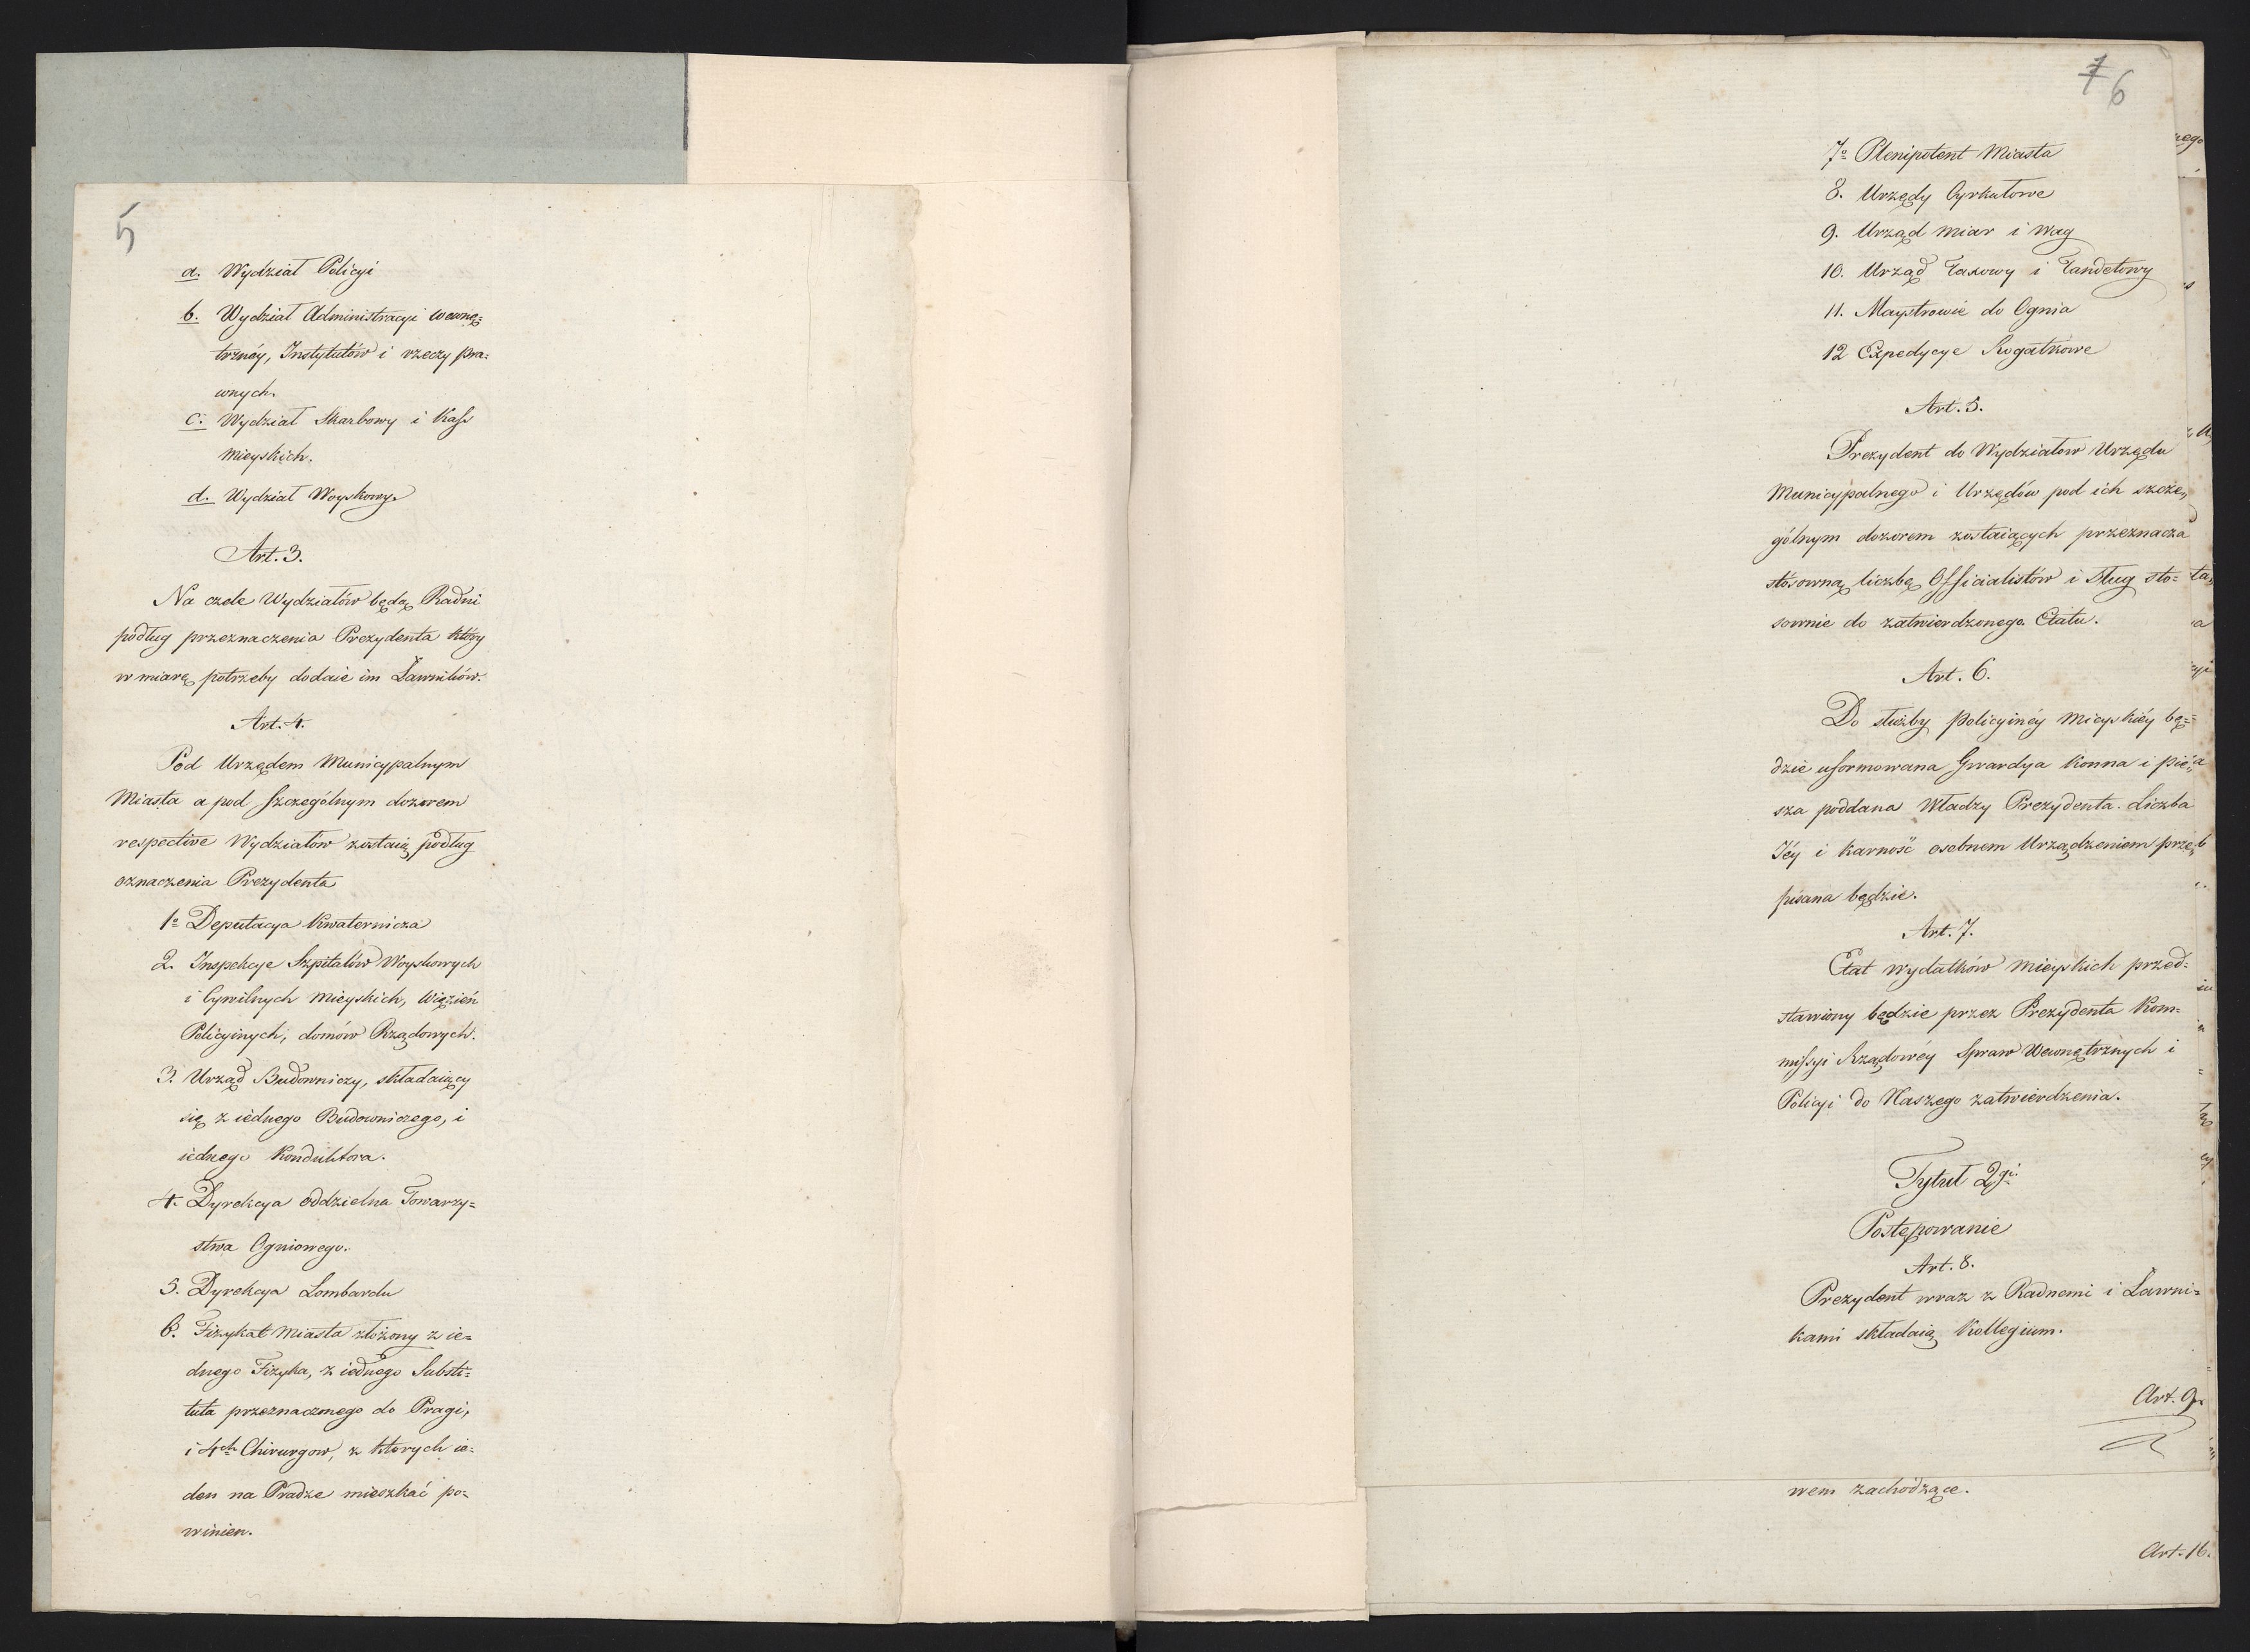 5
a. Wydział Policyi
b. Wydział Administracyi wewnę=
trznéy, Instytutów i rzeczy pra=
wnych.
c. Wydział Skarbowy i Kass
Mieyskich.
d. Wydział Woyskowy.
Art. 3.
Na czele Wydziałów będą Radni
podług przeznaczenia Prezydenta który
w miarę potrzeby dodaie im Ławników.
Art. 4.
Pod Urzędem Municypalnym
Miasta a pod szczególnym dozorem
respective Wydziałów zostaią podług
oznaczenia Prezydenta
1o Deputacya Kwaternicza
2. Inspekcye Szpitalów Woyskowych
i Cywilnych Mieyskich, Więzień
Policyinych, domów Rządowych.
3. Urząd Budowniczy, składaiący
się z iednego Budowniczego, i
iednego Konduktora.
4. Dyrekcya oddzielna Towarzy=
stwa Ogniowego.
5. Dyrekcya Lombardu
6. Fizykat Miasta złożony z ie=
dnego Fizyka, z iednego Substi=
tuta przeznaczonego do Pragi,
i 4ch Chirurgow, z ktorych ie=
den na Pradze mieszkać po=
winien.
7 6
7o Plenipotent Miasta
8. Urzędy Cyrkułowe
9. Urząd Miar i Wag
10. Urząd Taxowy i Tandetowy
11. Maystrowie do Ognia
12 Expedycye Rogatkowe
Art. 5.
Prezydent do Wydziałow Urzędu
Municypalnego i Urzędów pod ich szcze„
gólnym dozorem zostaiących przeznacza
stósowną liczbę Officialistów i Sług sto=
sownie do zatwierdzonego Etatu.
Art. 6.
Do służby policyinéy Mieyskiéy bę=
dzie uformowana Gwardya Konna i pie„
sza poddana Władzy Prezydenta. Liczba
Iéy i Karność osobnem Urządzeniem prze„
pisana będzie.
Art. 7.
Etat wydatków Mieyskich przed=
stawiony będzie przez Prezydenta Kom=
missyi Rządowéy Spraw Wewnętrznych i
Policyi do Naszego zatwierdzenia.
Tytuł 2gi.
Postępowanie
Art. 8.
Prezydent wraz z Radnemi i Ławni=
kami składaią Kollegium.
Art. 9.
wem zachodzące.
Art. 16.